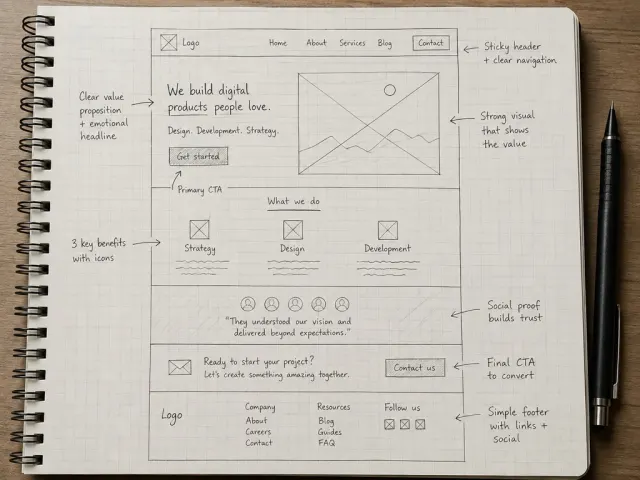 Logo
Home About Services Blog Contact
Sticky header
+ clear navigation
Clear value
proposition
+ emotional
headline
We build digital
products people love.
Design. Development. Strategy.
Get started
Primary CTA
Strong visual
that shows
the value
What we do
3 key benefits
with icons
Strategy Design Development
"They understood our vision and
delivered beyond expectations."
Social proof
builds trust
Ready to start your project?
Let's create something amazing together.
Contact us
Final CTA
to convert
Logo
Company
About
Careers
Contact
Resources
Blog
Guides
FAQ
Follow us
Simple footer
with links +
social